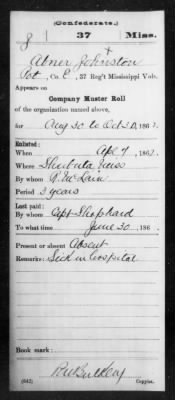 (Confederate.)
J 37 Miss.
Abner Johnston
Pvt, Co. E, 37 Reg't Mississippi Vols.
Appears on
Company Muster Roll
of the organization named above,
for Aug 30 to Oct 30, 186
Enlisted:
When Apl 7, 1862.
Where Shubuta Miss
By whom R. McLain
Period 3 years
Last paid:
By whom Capt Shephard
To what time June 30, 186
Present or absent Absent
Remarks: Sick in hospital
Book mark:
(642) Copyist.